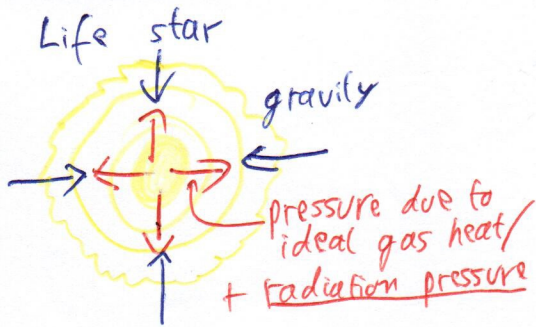 Life star
gravity
pressure due to
ideal gas heat/
+ radiation pressure